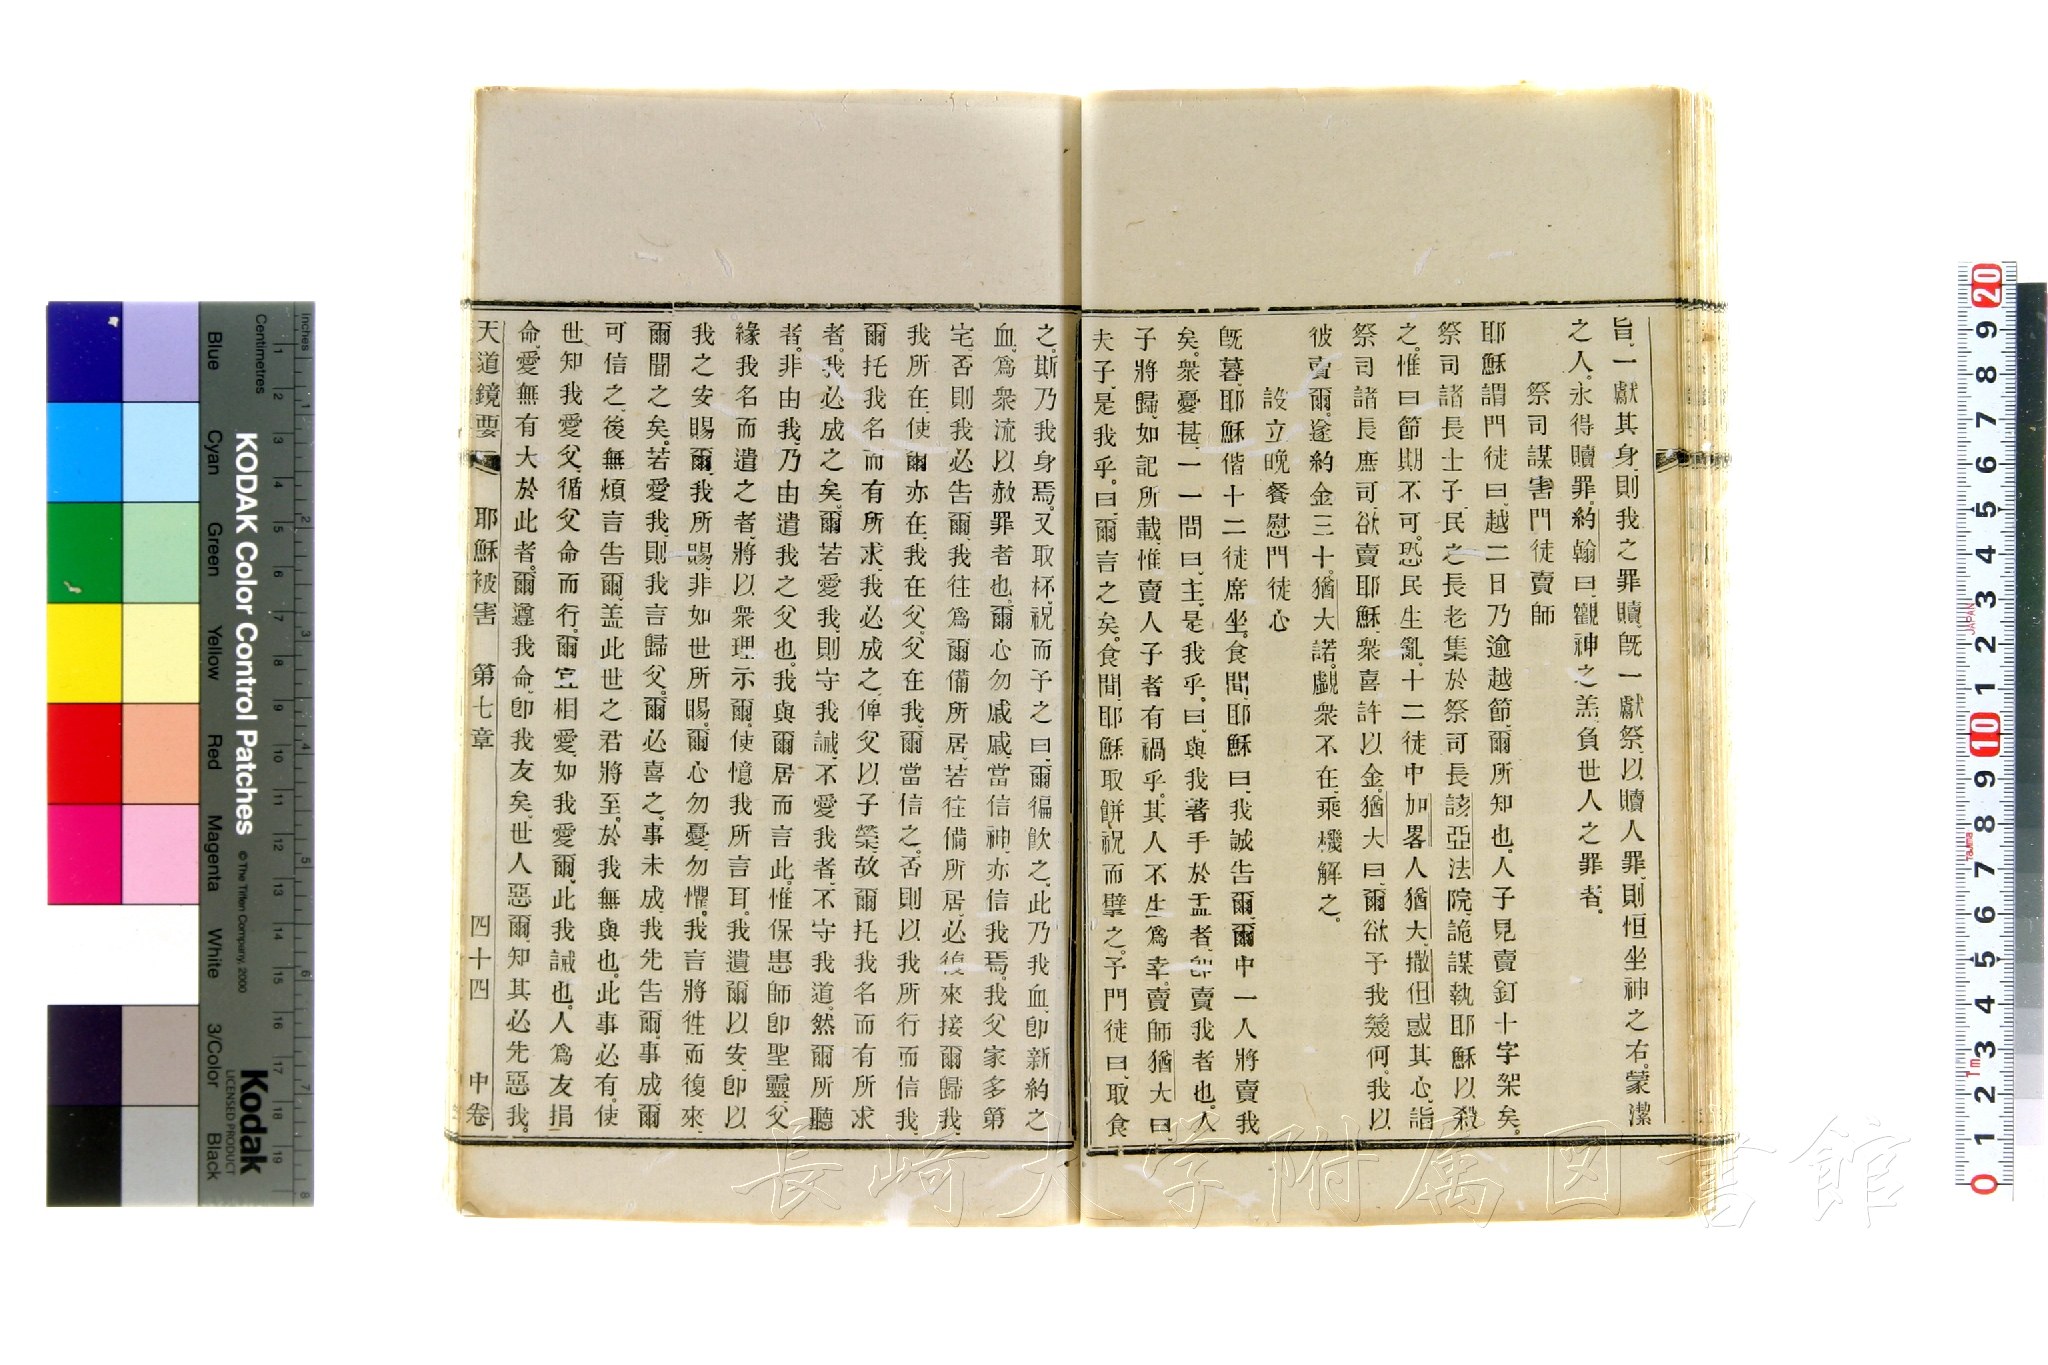 旨、一獻其身、則我之罪贖、旣一獻祭、以贖人罪、則恒坐神之右。蒙潔
之人。永得贖罪。約翰曰、觀神之羔、負世人之罪者。
祭司謀害門徒賣師
耶穌謂門徒曰、越二日乃逾越節、爾所知也。人子見賣釘十字架矣。
祭司諸長士子、民之長老集於祭司長該亞法院、詭謀執耶穌以殺
之。惟曰節期不可。恐民生亂、十二徒中加畧人猶大、撒但惑其心、詣
祭司諸長庶司、欲賣耶穌、衆喜許以金。猶大曰、爾欲予我幾何。我以
彼賣爾。遂約金三十。猶大諾。覷衆不在、乘機解之。
設立晚餐慰門徒心
旣暮、耶穌偕十二徒席坐。食間、耶穌曰、我誠告爾、爾中一人將賣我
矣。衆憂甚、一一問曰、主、是我乎。曰、與我著手於盂者、卽賣我者也。人
子將歸、如記所載、惟賣人子者有禍乎。其人不生爲幸。賣師猶大曰、
夫子、是我乎。曰、爾言之矣。食間、耶穌取餅祝而擘之。予門徒曰、取食
之。斯乃我身焉。又取杯、祝而予之曰、爾徧飮之。此乃我血、卽新約之
血、爲衆流以赦罪者也。爾心勿戚戚、當信神、亦信我焉。我父家多第
宅、否則我必告爾、我往爲爾備所居、若往備所居、必復來接爾歸我、
我所在、使爾亦在、我在父、父在我、爾當信之。否則以我所行而信我、
爾托我名而有所求、我必成之、俾父以子榮、故爾托我名而有所求
者。我必成之矣。爾若愛我、則守我誡、不愛我者、不守我道。然爾所聽
者。非由我、乃由遣我之父也。我與爾居而言此。惟保惠師卽聖靈、父
緣我名而遣之者、將以衆理示爾、使憶我所言耳。我遺爾以安、卽以
我之安賜爾、我所賜、非如世所賜。爾心勿憂、勿懼。我言將徃而復來、
爾聞之矣。若愛我、則我言歸父。爾必喜之。事未成、我先告爾。事成、爾
可信之、後無煩言告爾、盖此世之君將至。於我無與也。此事必有。使
世知我愛父、循父命而行。爾宜相愛、如我愛爾、此我誡也。人爲友捐
命、愛無有大於此者。爾遵我命、卽我友矣、世人惡爾、知其必先惡我。
天道鏡要 耶穌被害 第七章 四十四 中卷
長崎大学附属図書館
KODAK Color Control Patches
© The Tiffen Company, 2000
Kodak
LICENSED PRODUCT
Inches
Centimetres
Blue
Cyan
Green
Yellow
Red
Magenta
White
3/Color
Black
1 2 3 4 5 6 7 8 9 10 11 12 13 14 15 16 17 18 19
1 2 3 4 5 6 7 8
20 9 8 7 6 5 4 3 2 1 10 9 8 7 6 5 4 3 2 1 0
JAPAN
Tajima
1m